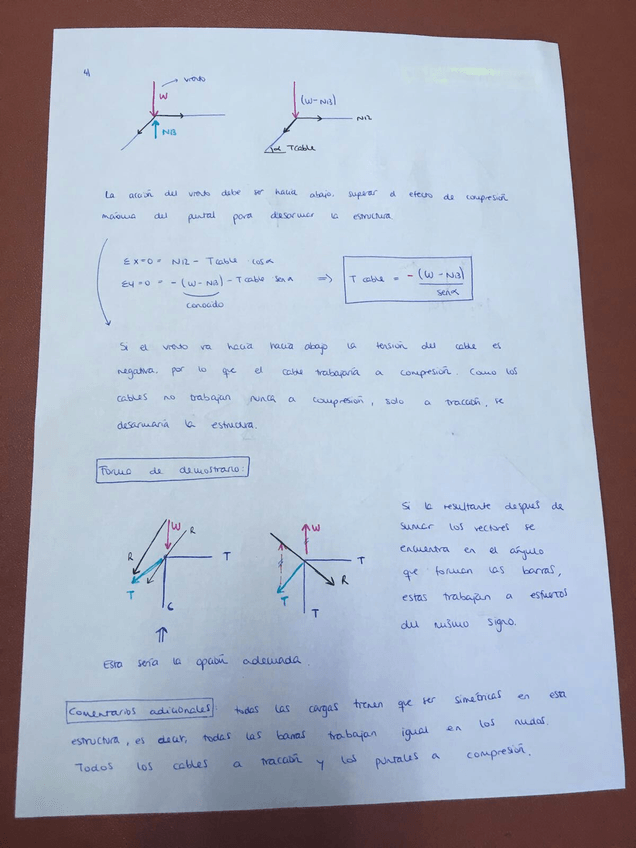 4)
W viento
NB
(W-NB)
N12
α Tcable
La acción del viento debe ser hacia abajo, superar el efecto de compresión
máxima del puntal para desarmar la estructura.
ΣX=0 = N12 - Tcable · cosα
ΣY=0 = -(W-NB) - Tcable senα => T cable = -(W-NB)/senα
conocido
Si el viento va hacia hacia abajo la tensión del cable es
negativa, por lo que el cable trabajaría a compresión. Como los
cables no trabajan nunca a compresión, solo a tracción, se
desarmaría la estructura.
Forma de demostrarlo:
W R
R T
T
C
W
T
T R
T
Si la resultante después de
sumar los vectores se
encuentra en el ángulo
que forman las barras,
estas trabajan a esfuerzos
del mismo signo.
Esta sería la opción adecuada.
Comentarios adicionales: todas las cargas tienen que ser simétricas en esta
estructura, es decir, todas las barras trabajan igual en los nudos.
Todos los cables a tracción y los puntales a compresión.